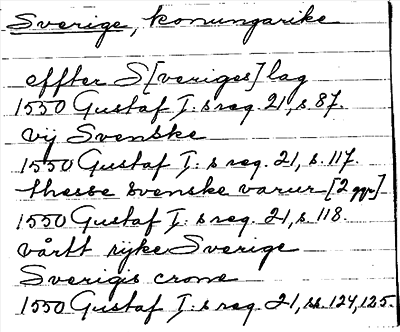 Sverige, konungarike
effter S[veriges] lag
1550 Gustaf I:s reg. 21, s. 87.
vij Svenske
1550 Gustaf I:s reg. 21, s. 117.
thesse svenske varur [2 ggr]
1550 Gustaf I:s reg. 21, s. 118.
vårtt rijke Sverige
Sverigis crone
1550 Gustaf I:s reg. 21, ss. 124, 125.